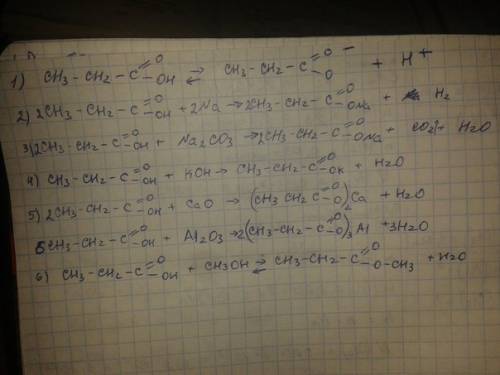 1) CH3-CH2-C(=O)-OH ⇄ CH3-CH2-C(=O)-O⁻ + H⁺
2) 2CH3-CH2-C(=O)-OH + 2Na → 2CH3-CH2-C(=O)-ONa + H2
3) 2CH3-CH2-C(=O)-OH + Na2CO3 → 2CH3-CH2-C(=O)-ONa + CO2↑ + H2O
4) CH3-CH2-C(=O)-OH + KOH → CH3-CH2-C(=O)-OK + H2O
5) 2CH3-CH2-C(=O)-OH + CaO → (CH3CH2C(=O)-O)2Ca + H2O
6CH3-CH2-C(=O)-OH + Al2O3 → 2(CH3-CH2-C(=O)-O)3Al + 3H2O
6) CH3-CH2-C(=O)-OH + CH3OH ⇄ CH3-CH2-C(=O)-O-CH3 + H2O